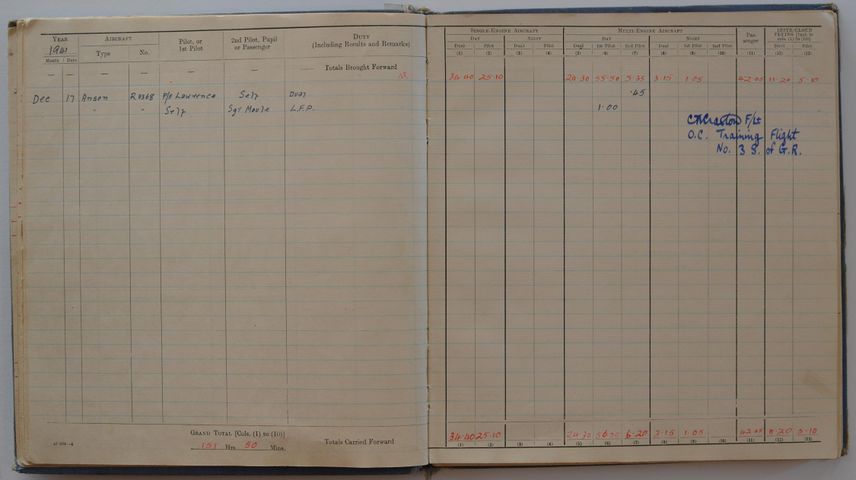 YEAR AIRCRAFT Pilot, or 1st Pilot 2nd Pilot, Pupil or Passenger DUTY (Including Results and Remarks)
1941 Type No.
Month Date
— — — — — — — Totals Brought Forward
Dec 17 Anson R3368 P/o Lawrence Self Dual
" " Self Sgt L.F.P.
GRAND TOTAL [Cols. (1) to (10)]
151 Hrs. 50 Mins.
Totals Carried Forward
SINGLE-ENGINE AIRCRAFT MULTI-ENGINE AIRCRAFT Pas- senger INSTR/CLOUD FLYING [Incl. in cols. (1) to (10)]
DAY NIGHT DAY NIGHT
Dual Pilot Dual Pilot Dual 1st Pilot 2nd Pilot Dual 1st Pilot 2nd Pilot Dual Pilot
(1) (2) (3) (4) (5) (6) (7) (8) (9) (10) (11) (12) (13)
34.40 25.10 26.30 55.50 5.35 3.15 1.05 42.05 11.20 5.10
.45
1.00
F/Lt
O.C. Training Flight
No. 3 S. of G.R.
34.40 25.10 26.30 56.50 6.20 3.15 1.05 42.05 11.20 5.10
(1) (2) (3) (4) (5) (6) (7) (8) (9) (10) (11) (12) (13)